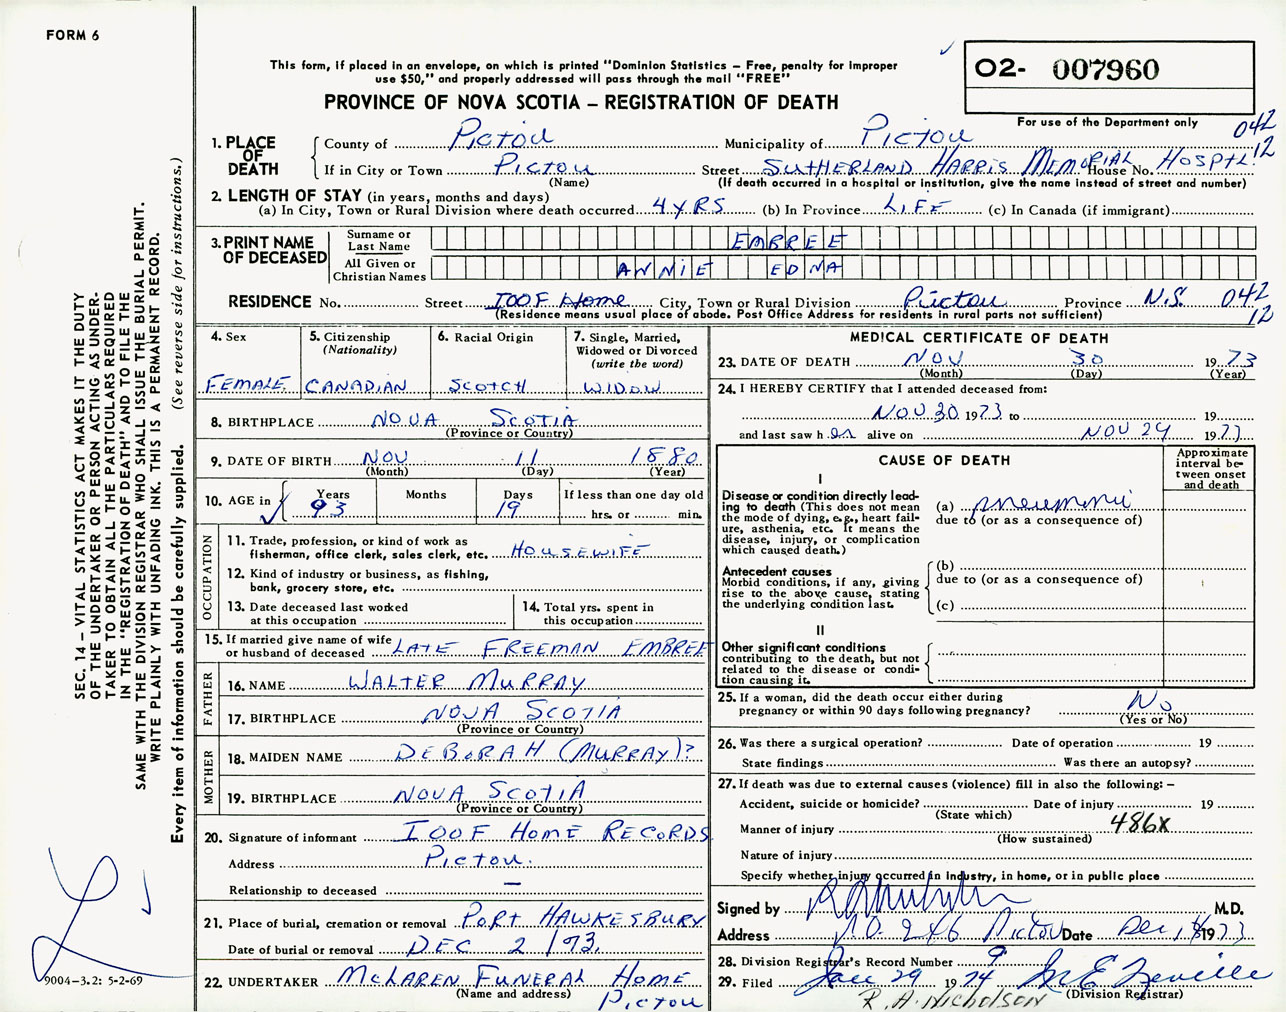 FORM 6
This form, if placed in an envelope, on which is printed "Dominion Statistics – Free, penalty for improper
use $50," and properly addressed will pass through the mail "FREE"
PROVINCE OF NOVA SCOTIA – REGISTRATION OF DEATH
O2- 007960
For use of the Department only
042
12
1. PLACE OF DEATH
County of PICTOU Municipality of PICTOU
If in City or Town PICTOU Street SUTHERLAND HARRIS MEMORIAL House No. HOSPTL
(Name) (If death occurred in a hospital or institution, give the name instead of street and number)
2. LENGTH OF STAY (in years, months and days)
(a) In City, Town or Rural Division where death occurred 4 YRS (b) In Province LIFE (c) In Canada (if immigrant)
3. PRINT NAME OF DECEASED
Surname or Last Name EMBREE
All Given or Christian Names ANNIE EDNA
RESIDENCE No. Street IOOF Home City, Town or Rural Division Pictou Province N.S. 042
12
(Residence means usual place of abode. Post Office Address for residents in rural parts not sufficient)
4. Sex FEMALE
5. Citizenship (Nationality) CANADIAN
6. Racial Origin SCOTCH
7. Single, Married, Widowed or Divorced (write the word) WIDOW
8. BIRTHPLACE NOVA SCOTIA
(Province or Country)
9. DATE OF BIRTH NOV 11 1880
(Month) (Day) (Year)
10. AGE in Years 93 Months Days 19 If less than one day old
hrs. or min.
OCCUPATION
11. Trade, profession, or kind of work as
fisherman, office clerk, sales clerk, etc. HOUSEWIFE
12. Kind of industry or business, as fishing,
bank, grocery store, etc.
13. Date deceased last worked
at this occupation
14. Total yrs. spent in
this occupation
15. If married give name of wife
or husband of deceased LATE FREEMAN EMBREE
FATHER
16. NAME WALTER MURRAY
17. BIRTHPLACE NOVA SCOTIA
(Province or Country)
MOTHER
18. MAIDEN NAME DEBORAH (MURRAY)?
19. BIRTHPLACE NOVA SCOTIA
(Province or Country)
20. Signature of informant IOOF HOME RECORDS
Address PICTOU.
Relationship to deceased —
21. Place of burial, cremation or removal PORT HAWKESBURY
Date of burial or removal DEC 2 / 73.
22. UNDERTAKER McLAREN FUNERAL HOME
(Name and address) PICTOU
MEDICAL CERTIFICATE OF DEATH
23. DATE OF DEATH NOV 30 1973
(Month) (Day) (Year)
24. I HEREBY CERTIFY that I attended deceased from:
NOV 30 1973 to 19
and last saw h er alive on NOV 29 1973
CAUSE OF DEATH
Approximate interval between onset and death
I
Disease or condition directly lead-
ing to death (This does not mean
the mode of dying, e.g., heart fail-
ure, asthenia, etc. It means the
disease, injury, or complication
which caused death.)
(a) pneumonia
due to (or as a consequence of)
Antecedent causes
Morbid conditions, if any, giving
rise to the above cause, stating
the underlying condition last.
(b)
due to (or as a consequence of)
(c)
II
Other significant conditions
contributing to the death, but not
related to the disease or condi-
tion causing it.
25. If a woman, did the death occur either during
pregnancy or within 90 days following pregnancy? No
(Yes or No)
26. Was there a surgical operation? Date of operation 19
State findings Was there an autopsy?
27. If death was due to external causes (violence) fill in also the following: –
Accident, suicide or homicide? Date of injury 19
(State which)
Manner of injury 486X
(How sustained)
Nature of injury
Specify whether injury occurred in industry, in home, or in public place
Signed by M.D.
Address 246 Pictou Date Dec 1973
28. Division Registrar's Record Number 9
29. Filed Jan 29 1974
(Division Registrar)
R. A. NICHOLSON
SEC. 14 – VITAL STATISTICS ACT MAKES IT THE DUTY
OF THE UNDERTAKER OR PERSON ACTING AS UNDER-
TAKER TO OBTAIN ALL THE PARTICULARS REQUIRED
IN THE "REGISTRATION OF DEATH" AND TO FILE THE
SAME WITH THE DIVISION REGISTRAR WHO SHALL ISSUE THE BURIAL PERMIT.
WRITE PLAINLY WITH UNFADING INK. THIS IS A PERMANENT RECORD.
Every item of information should be carefully supplied. (See reverse side for instructions.)
9004-3.2: 5-2-69